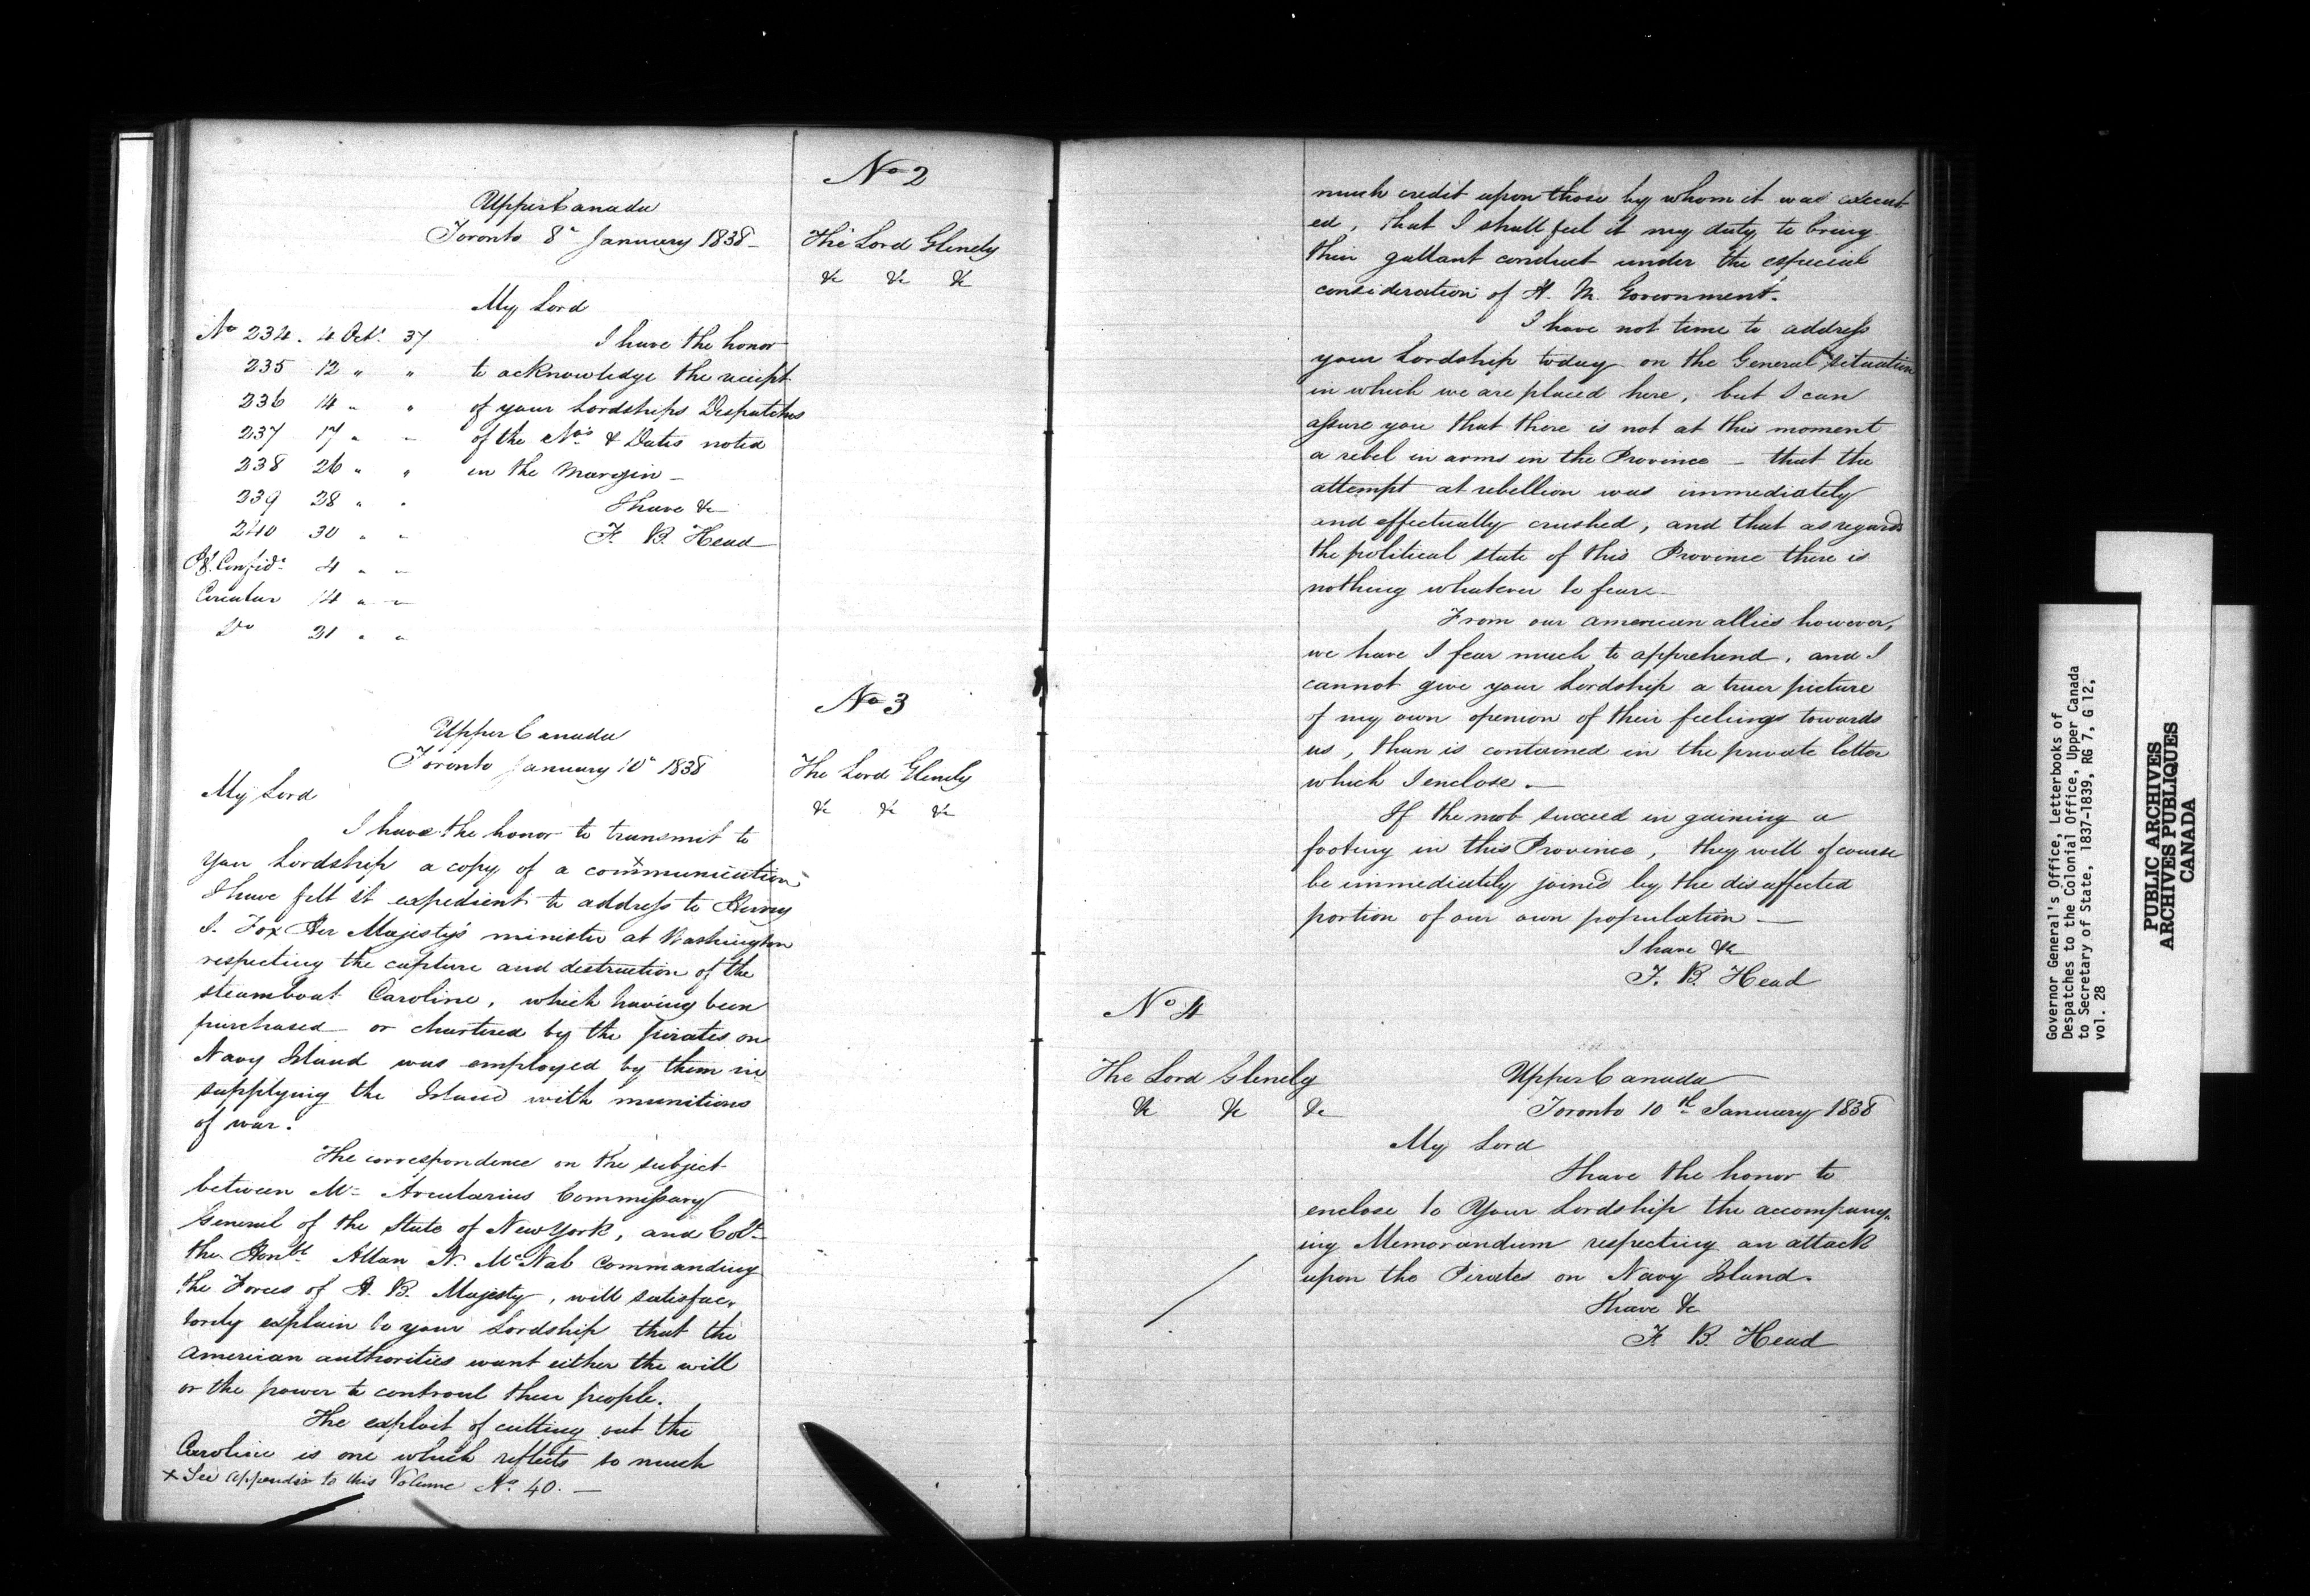 No 2
Upper Canada
Toronto 8th January 1838 -
The Lord Glenelg
&c &c &c
My Lord
No 234. 4 Octr 37
I have the honor
235 12 " "
to acknowledge the receipt
236 14 " "
of your Lordships Despatches
237 17 " "
of the Nos & Dates noted
238 26 " "
in the Margin -
239 28 " "
I have &c
240 30 " "
F. B. Head
Confidl 4 " "
Circular 14 " "
Do 31 " "
No 3
Upper Canada
Toronto January 10th 1838
The Lord Glenelg
&c &c &c
My Lord
I have the honor to transmit to
Your Lordship a copy of a x communication
I have felt it expedient to address to Henry
S. Fox Her Majesty's minister at Washington
respecting the capture and destruction of the
steamboat Caroline, which having been
purchased or chartered by the pirates on
Navy Island was employed by them in
supplying the Island with munitions
of war.
The correspondence on the subject
between Mr Arcularius Commissary
General of the State of New York, and Colt
the Honble Allan N. McNab Commanding
the Forces of H. B. Majesty, will satisfac-
torily explain to your Lordship that the
American authorities want either the will
or the power to controul their people.
The exploit of cutting out the
Caroline is one which reflects so much
x See Appendix to this Volume No. 40. -
much credit upon those by whom it was execut
ed, that I shall feel it my duty to bring
their gallant conduct under the especial
consideration of H. M. Government.
I have not time to address
your Lordship today on the General situation
in which we are placed here, but I can
assure you that there is not at this moment
a rebel in arms in the Province - that the
attempt at rebellion was immediately
and effectually crushed, and that as regards
the political state of this Province there is
nothing whatever to fear -
From our american allies however,
we have I fear much to apprehend, and I
cannot give your Lordship a truer picture
of my own openion of their feelings towards
us, than is contained in the private letter
which I enclose. -
If the mob succeed in gaining a
footing in this Province, they will of course
be immediately joined by the disaffected
portion of our own population -
I have &c
F. B. Head
No 4
The Lord Glenelg
&c &c &c
Upper Canada
Toronto 10th January 1838
My Lord
I have the honor to
enclose to Your Lordship the accompany-
ing Memorandum respecting an attack
upon the Pirates on Navy Island.
I have &c
F. B. Head
Governor General's Office, Letterbooks of
Despatches to the Colonial Office, Upper Canada
to Secretary of State. 1837-1839, RG 7, G 12,
vol. 28
PUBLIC ARCHIVES
ARCHIVES PUBLIQUES
CANADA